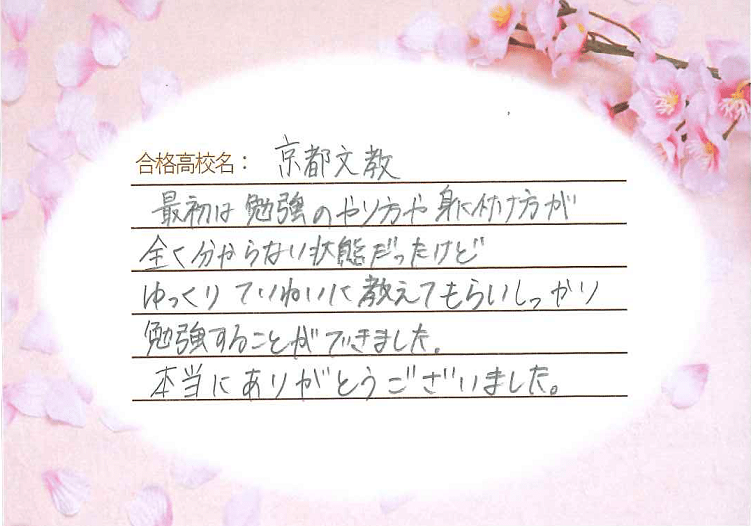 合格高校名： 京都文教
最初は勉強のやり方や身に付け方が
全く分からない状態だったけど
ゆっくりていねいに教えてもらいしっかり
勉強することができました。
本当にありがとうございました。